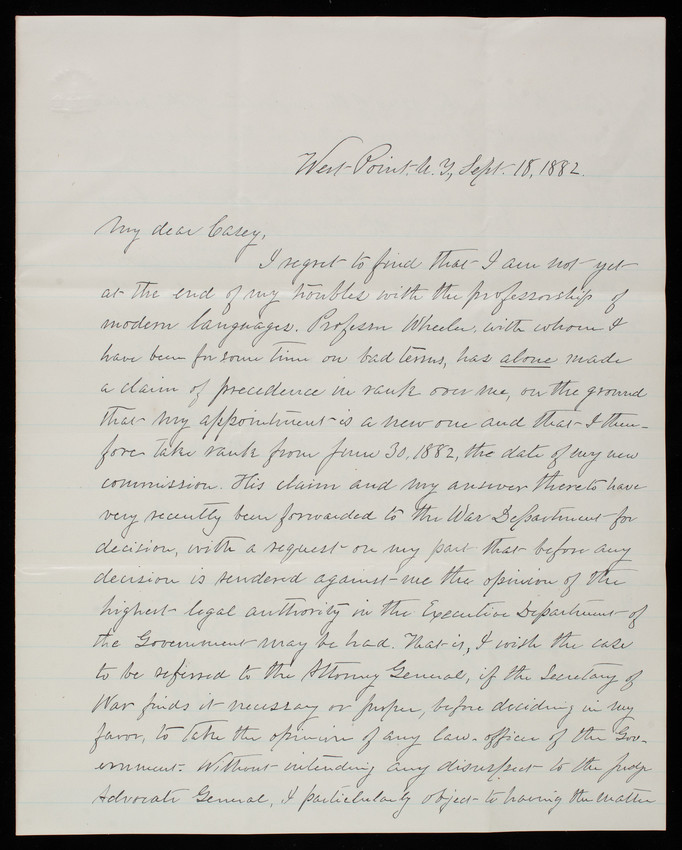 West Point. N. Y., Sept. 18, 1882.
My dear Casey,
I regret to find that I am not yet
at the end of my troubles with the professorship of
modern languages. Professor Wheeler, with whom I
have been for some time on bad terms, has alone made
a claim of precedence in rank over me, on the ground
that my appointment is a new one and that I there-
fore take rank from June 30, 1882, the date of my new
commission. His claim and my answer thereto have
very recently been forwarded to the War Department for
decision, with a request on my part that before any
decision is rendered against me the opinion of the
highest legal authority in the Executive Department of
the Government may be had. That is, I wish the case
to be referred to the Attorney General, if the Secretary of
War finds it necessary or proper, before deciding in my
favor, to take the opinion of any law-officer of the Gov-
ernment. Without intending any disrespect to the Judge
Advocate General, I particularly object to having the matter